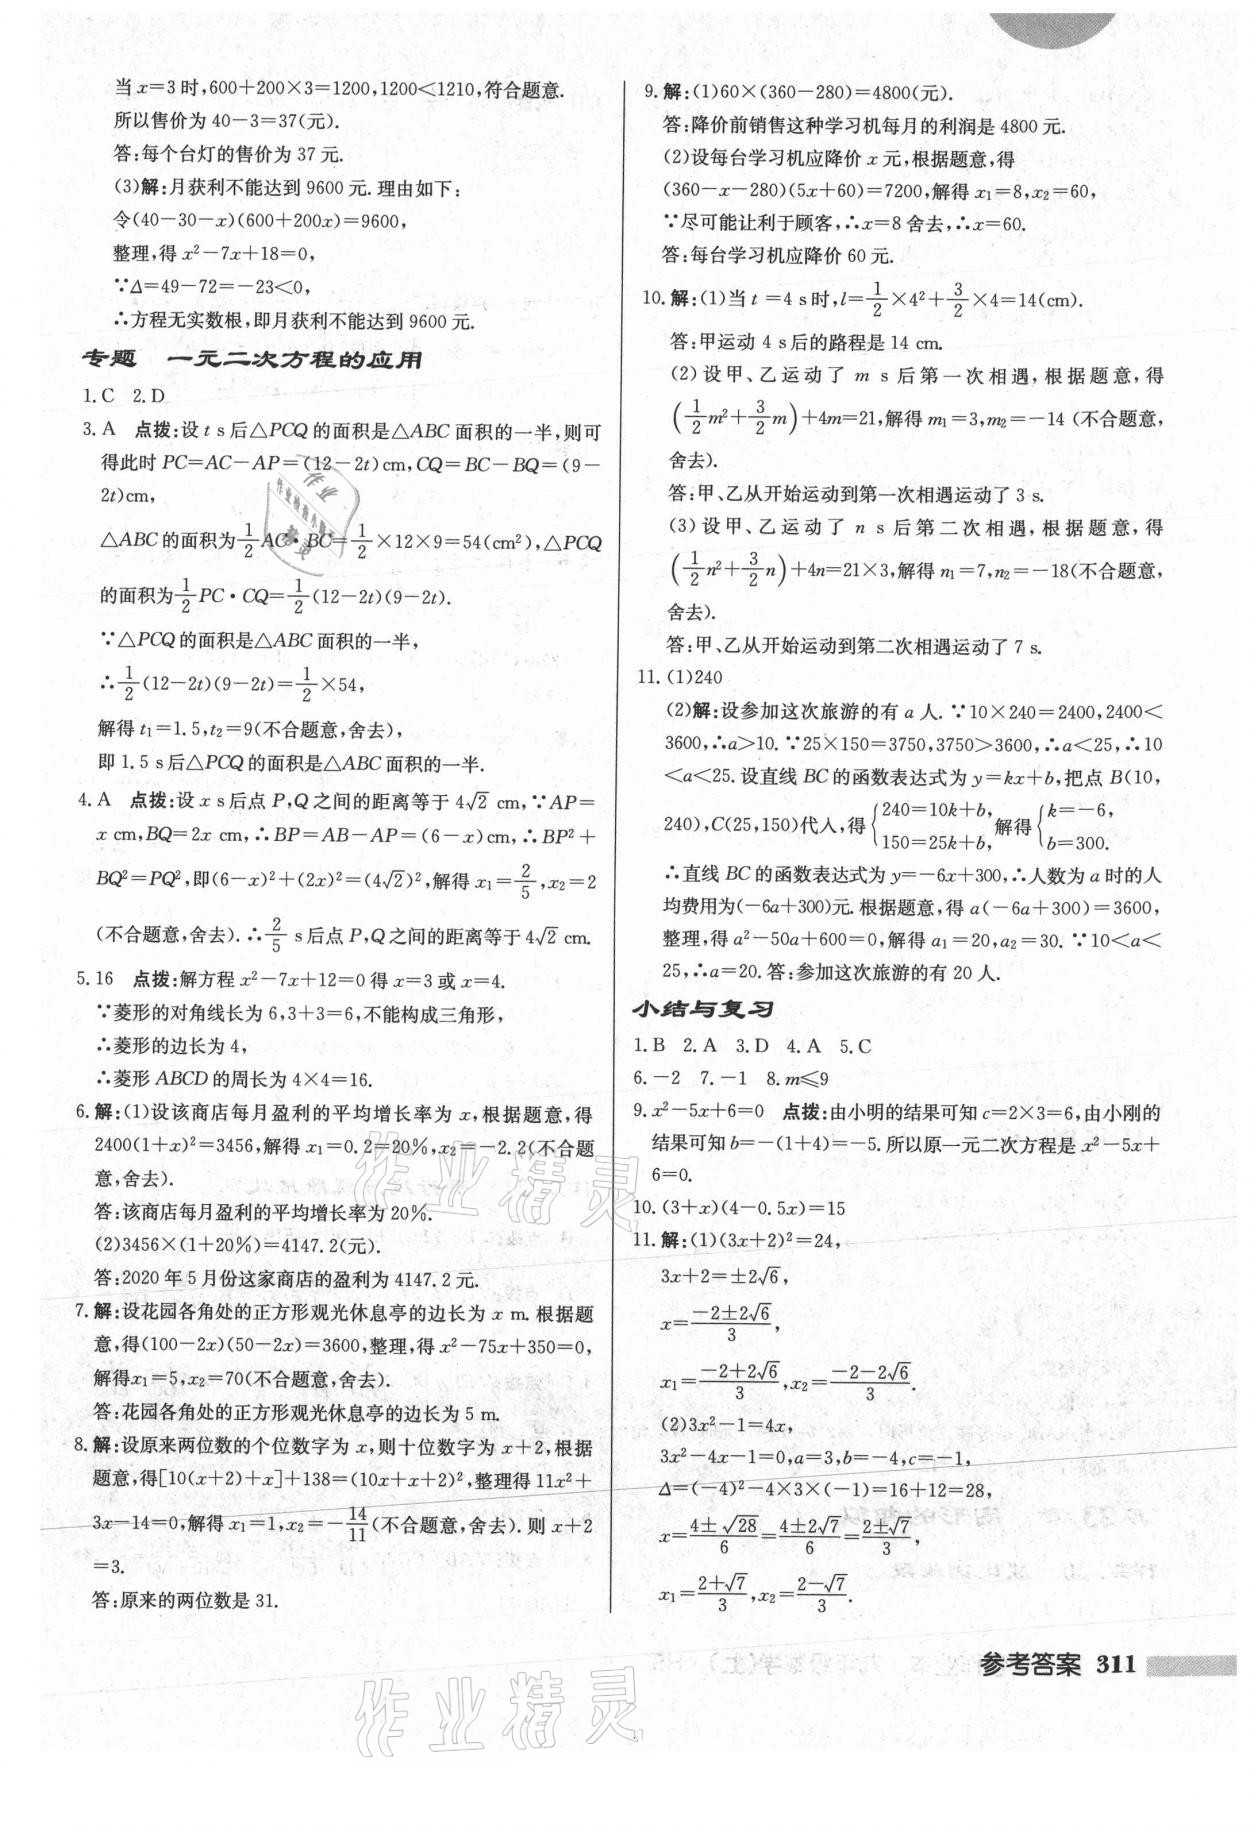 当x=3时,600+200×3=1200,1200<1210,符合题意.
所以售价为40-3=37(元).
答:每个台灯的售价为37元.
(3)解:月获利不能达到9600元.理由如下:
令(40-30-x)(600+200x)=9600,
整理,得x²-7x+18=0,
∵Δ=49-72=-23<0,
∴方程无实数根,即月获利不能达到9600元.
专题 一元二次方程的应用
1.C 2.D
3.A 点拨:设t s后△PCQ的面积是△ABC面积的一半,则可
得此时PC=AC-AP=(12-2t)cm,CQ=BC-BQ=(9-
2t)cm,
△ABC的面积为1/2 AC·BC=1/2×12×9=54(cm²),△PCQ
的面积为1/2 PC·CQ=1/2(12-2t)(9-2t).
∵△PCQ的面积是△ABC面积的一半,
∴1/2(12-2t)(9-2t)=1/2×54,
解得t₁=1.5,t₂=9(不合题意,舍去),
即1.5 s后△PCQ的面积是△ABC面积的一半.
4.A 点拨:设x s后点P,Q之间的距离等于4√2 cm,∵AP=
x cm,BQ=2x cm,∴BP=AB-AP=(6-x)cm,∴BP²+
BQ²=PQ²,即(6-x)²+(2x)²=(4√2)²,解得x₁=2/5,x₂=2
(不合题意,舍去).∴2/5 s后点P,Q之间的距离等于4√2 cm.
5.16 点拨:解方程x²-7x+12=0得x=3或x=4.
∵菱形的对角线长为6,3+3=6,不能构成三角形,
∴菱形的边长为4,
∴菱形ABCD的周长为4×4=16.
6.解:(1)设该商店每月盈利的平均增长率为x,根据题意,得
2400(1+x)²=3456,解得x₁=0.2=20%,x₂=-2.2(不合题
意,舍去).
答:该商店每月盈利的平均增长率为20%.
(2)3456×(1+20%)=4147.2(元).
答:2020年5月份这家商店的盈利为4147.2元.
7.解:设花园各角处的正方形观光休息亭的边长为x m.根据题
意,得(100-2x)(50-2x)=3600,整理,得x²-75x+350=0,
解得x₁=5,x₂=70(不合题意,舍去).
答:花园各角处的正方形观光休息亭的边长为5 m.
8.解:设原来两位数的个位数字为x,则十位数字为x+2,根据
题意,得[10(x+2)+x]+138=(10x+x+2)²,整理得11x²+
3x-14=0,解得x₁=1,x₂=-14/11(不合题意,舍去).则x+2
=3.
答:原来的两位数是31.
9.解:(1)60×(360-280)=4800(元).
答:降价前销售这种学习机每月的利润是4800元.
(2)设每台学习机应降价x元,根据题意,得
(360-x-280)(5x+60)=7200,解得x₁=8,x₂=60,
∵尽可能让利于顾客,∴x=8舍去,∴x=60.
答:每台学习机应降价60元.
10.解:(1)当t=4 s时,l=1/2×4²+3/2×4=14(cm).
答:甲运动4 s后的路程是14 cm.
(2)设甲、乙运动了m s后第一次相遇,根据题意,得
(1/2 m²+3/2 m)+4m=21,解得m₁=3,m₂=-14(不合题意,
舍去).
答:甲、乙从开始运动到第一次相遇运动了3 s.
(3)设甲、乙运动了n s后第二次相遇,根据题意,得
(1/2 n²+3/2 n)+4n=21×3,解得n₁=7,n₂=-18(不合题意,
舍去).
答:甲、乙从开始运动到第二次相遇运动了7 s.
11.(1)240
(2)解:设参加这次旅游的有a人.∵10×240=2400,2400<
3600,∴a>10.∵25×150=3750,3750>3600,∴a<25,∴10
<a<25.设直线BC的函数表达式为y=kx+b,把点B(10,
240),C(25,150)代入,得{240=10k+b, 150=25k+b, 解得{k=-6, b=300.
∴直线BC的函数表达式为y=-6x+300,∴人数为a时的人
均费用为(-6a+300)元.根据题意,得a(-6a+300)=3600,
整理,得a²-50a+600=0,解得a₁=20,a₂=30.∵10<a<
25,∴a=20.答:参加这次旅游的有20人.
小结与复习
1.B 2.A 3.D 4.A 5.C
6.-2 7.-1 8.m≤9
9.x²-5x+6=0 点拨:由小明的结果可知c=2×3=6,由小刚的
结果可知b=-(1+4)=-5.所以原一元二次方程是x²-5x+
6=0.
10.(3+x)(4-0.5x)=15
11.解:(1)(3x+2)²=24,
3x+2=±2√6,
x=(-2±2√6)/3,
x₁=(-2+2√6)/3,x₂=(-2-2√6)/3.
(2)3x²-1=4x,
3x²-4x-1=0,a=3,b=-4,c=-1,
Δ=(-4)²-4×3×(-1)=16+12=28,
x=(4±√28)/6=(4±2√7)/6=(2±√7)/3,
x₁=(2+√7)/3,x₂=(2-√7)/3.
参考答案 311
作业精灵
作业精灵